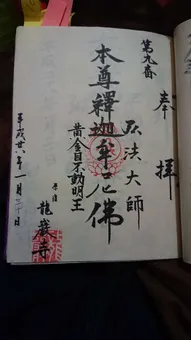 奉拝
第九番
弘法大師
本尊釋迦牟尼佛
黄金目不動明王
龍巖寺
平成廿八年一月三十日